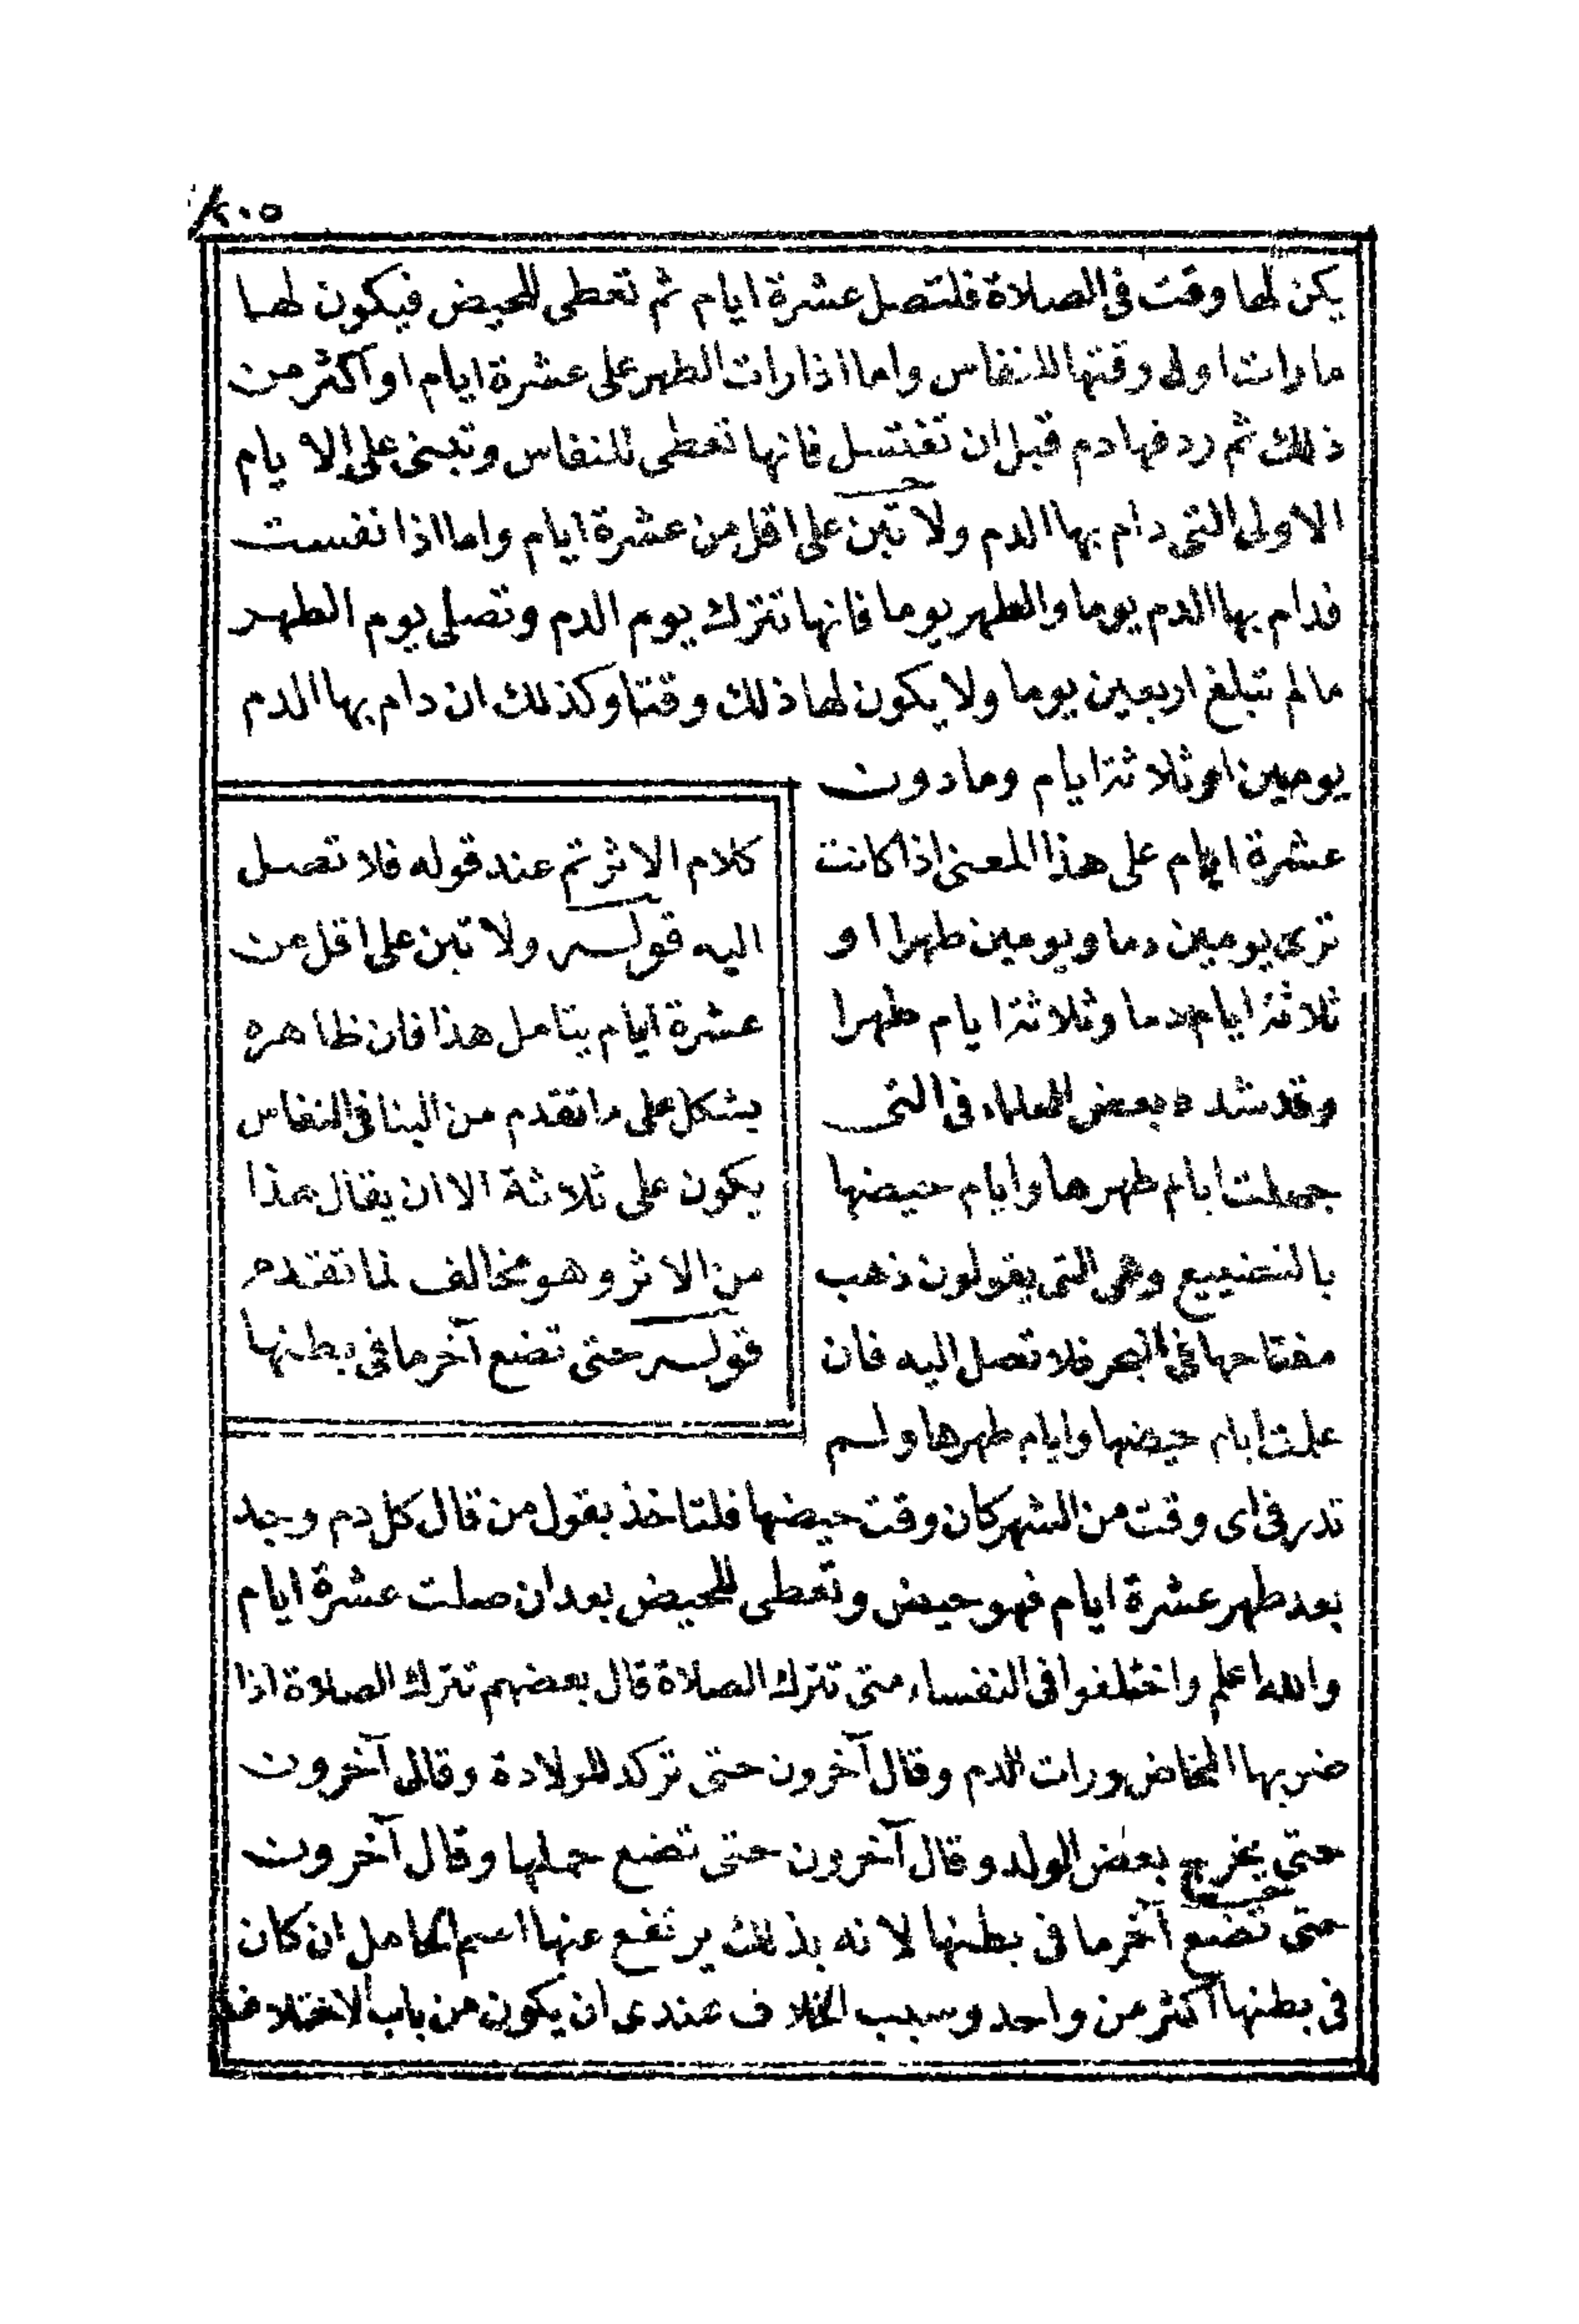 ٢٠٥
يكن لها وقت فى الصلاة فلتصل عشرة ايام ثم تعطى للحيض فيكون لها
مارات اولى وقتها للنفاس واما اذا رات الطهر على عشرة ايام او اكثر من
ذلك ثم ردفها دم قبل ان تغتسل فانها تعطى للنفاس وتبنى على الايام
الاولى التى دام بها الدم ولا تبن على اقل من عشرة ايام واما اذا نفست
فدام بها الدم يوما والطهر يوما فانها تترك يوم الدم وتصلى يوم الطهر
مالم تبلغ اربعين يوما ولا يكون لها ذلك وقتا وكذلك ان دام بها الدم
يومين او ثلاثة ايام وما دون
عشرة ايام على هذا المعنى اذا كانت
ترى يومين دما ويومين طهرا او
ثلاثة ايام دما وثلاثة ايام طهرا
وقد شدد بعض العلماء فى التى
جعلت ايام طهرها وايام حيضها
بالتضييع وهى التى يقولون ذهب
مفتاحها فى البحر فلا تصل اليه فان
علمت ايام حيضها وايام طهرها ولم
تدر فى اى وقت من الشهر كان وقت حيضها فلتاخذ بقول من قال كل دم وجد
بعد طهر عشرة ايام فهو حيض وتعطى للحيض بعد ان صلت عشرة ايام
والله اعلم واختلفوا فى النفساء متى تترك الصلاة قال بعضهم تترك الصلاة اذا
ضربها المخاض ورات الدم وقال آخرون حتى تركد للولادة وقال آخرون
حتى يخرج بعض الولد وقال آخرون حتى تضع حملها وقال آخرون
حتى تضع آخر ما فى بطنها لانه بذلك يرتفع عنها اسم الحامل ان كان
فى بطنها اكثر من واحد وسبب الخلاف عندى ان يكون من باب الاختلاف
كلام الاثر تم عند قوله فلا تصل
اليه قوله ولا تبن على اقل من
عشرة ايام يتامل هذا فان ظاهره
يشكل على ما تقدم من البنا فى النفاس
يكون على ثلاثة الا ان يقال هذا
من الاثر وهو مخالف لما تقدم
قوله حتى تضع آخر ما فى بطنها